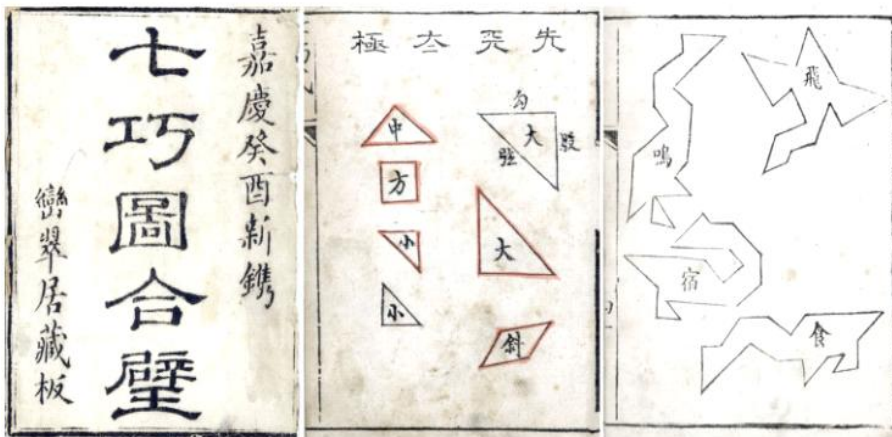 嘉慶癸酉新鐫
七巧圖合璧
巒翠居藏板
先天太極
勾
大
股
弦
大
斜
中
方
小
小
飛
鳴
宿
食